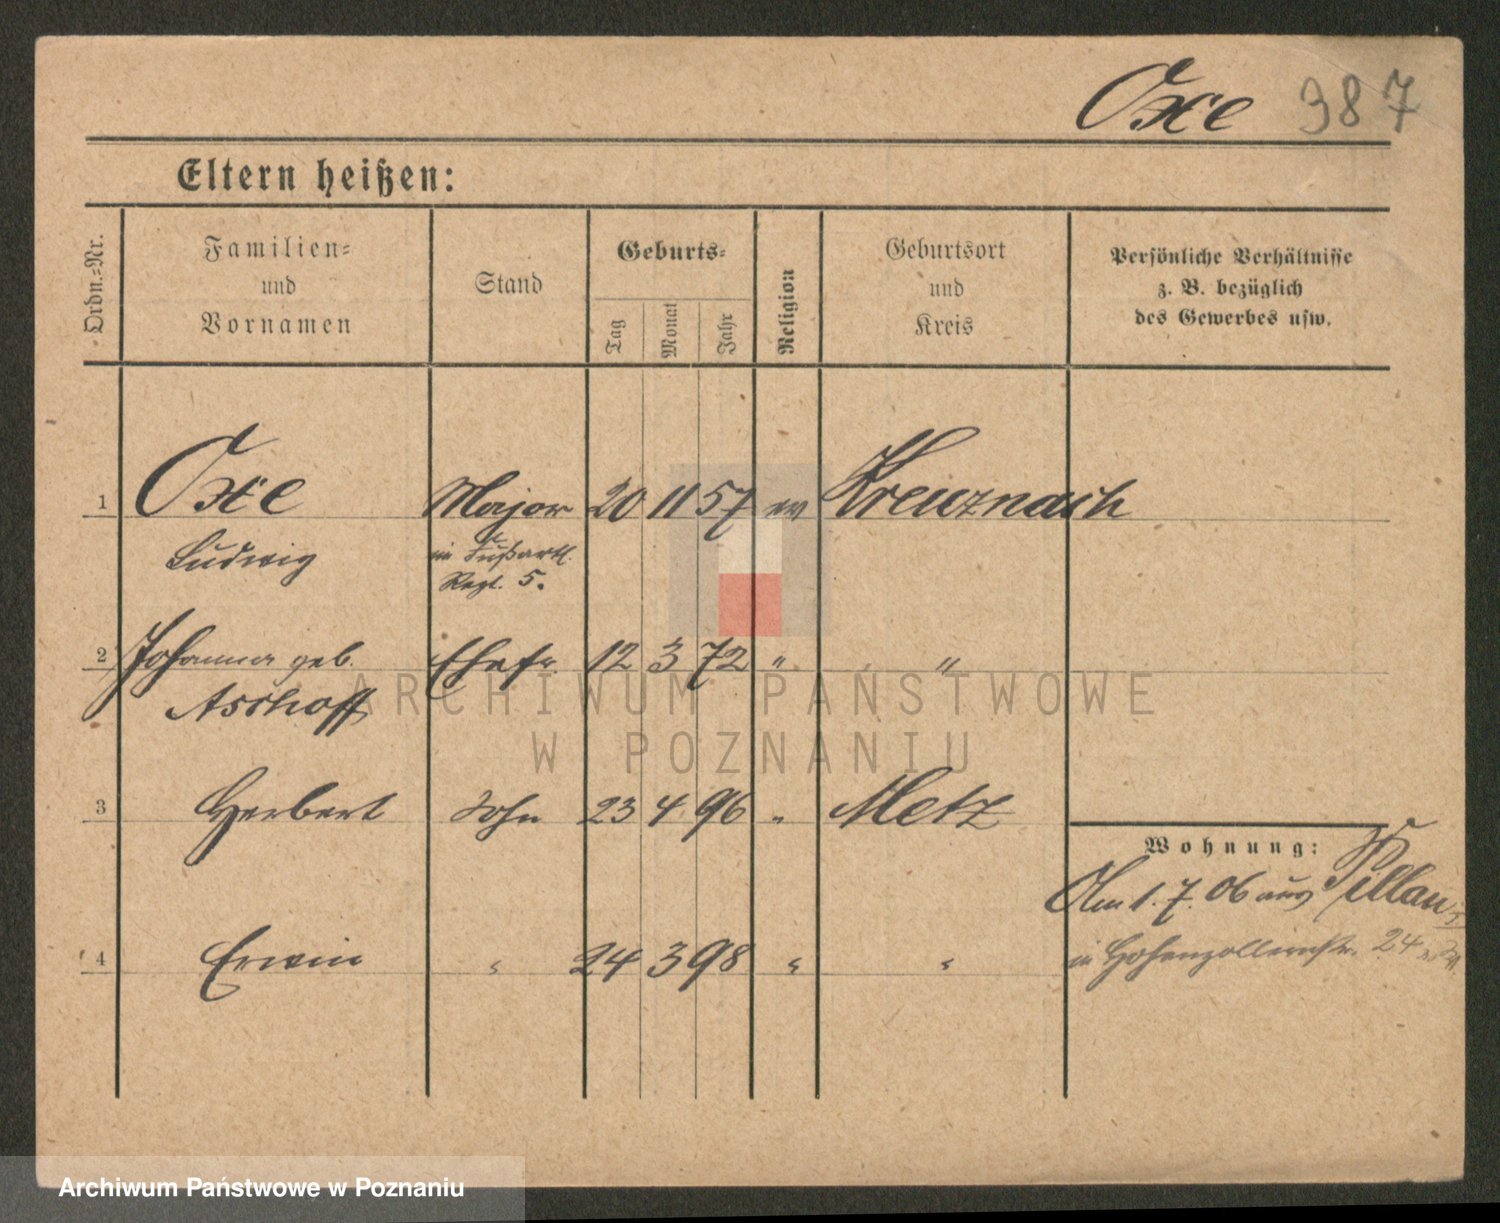 Oxe 387
Eltern heißen:
Ordn.-Nr.
Familien-
und
Vornamen
Stand
Geburts-
Tag
Monat
Jahr
Religion
Geburtsort
und
Kreis
Persönliche Verhältnisse
z. B. bezüglich
des Gewerbes usw.
1 Oxe Major 20 11 57 ev Kreuznach
Ludwig im Fußartl.
Regt. 5.
2 Johanna geb. Ehefr. 12 3 72 " "
Asshoff
3 Herbert Sohn 23 4 96 " Metz
Wohnung:
Am 1. 7. 06 aus Pillau
4 Erwin " 24 3 98 " "
in Hohenzollernstr. 24
ARCHIWUM PAŃSTWOWE
W POZNANIU
Archiwum Państwowe w Poznaniu